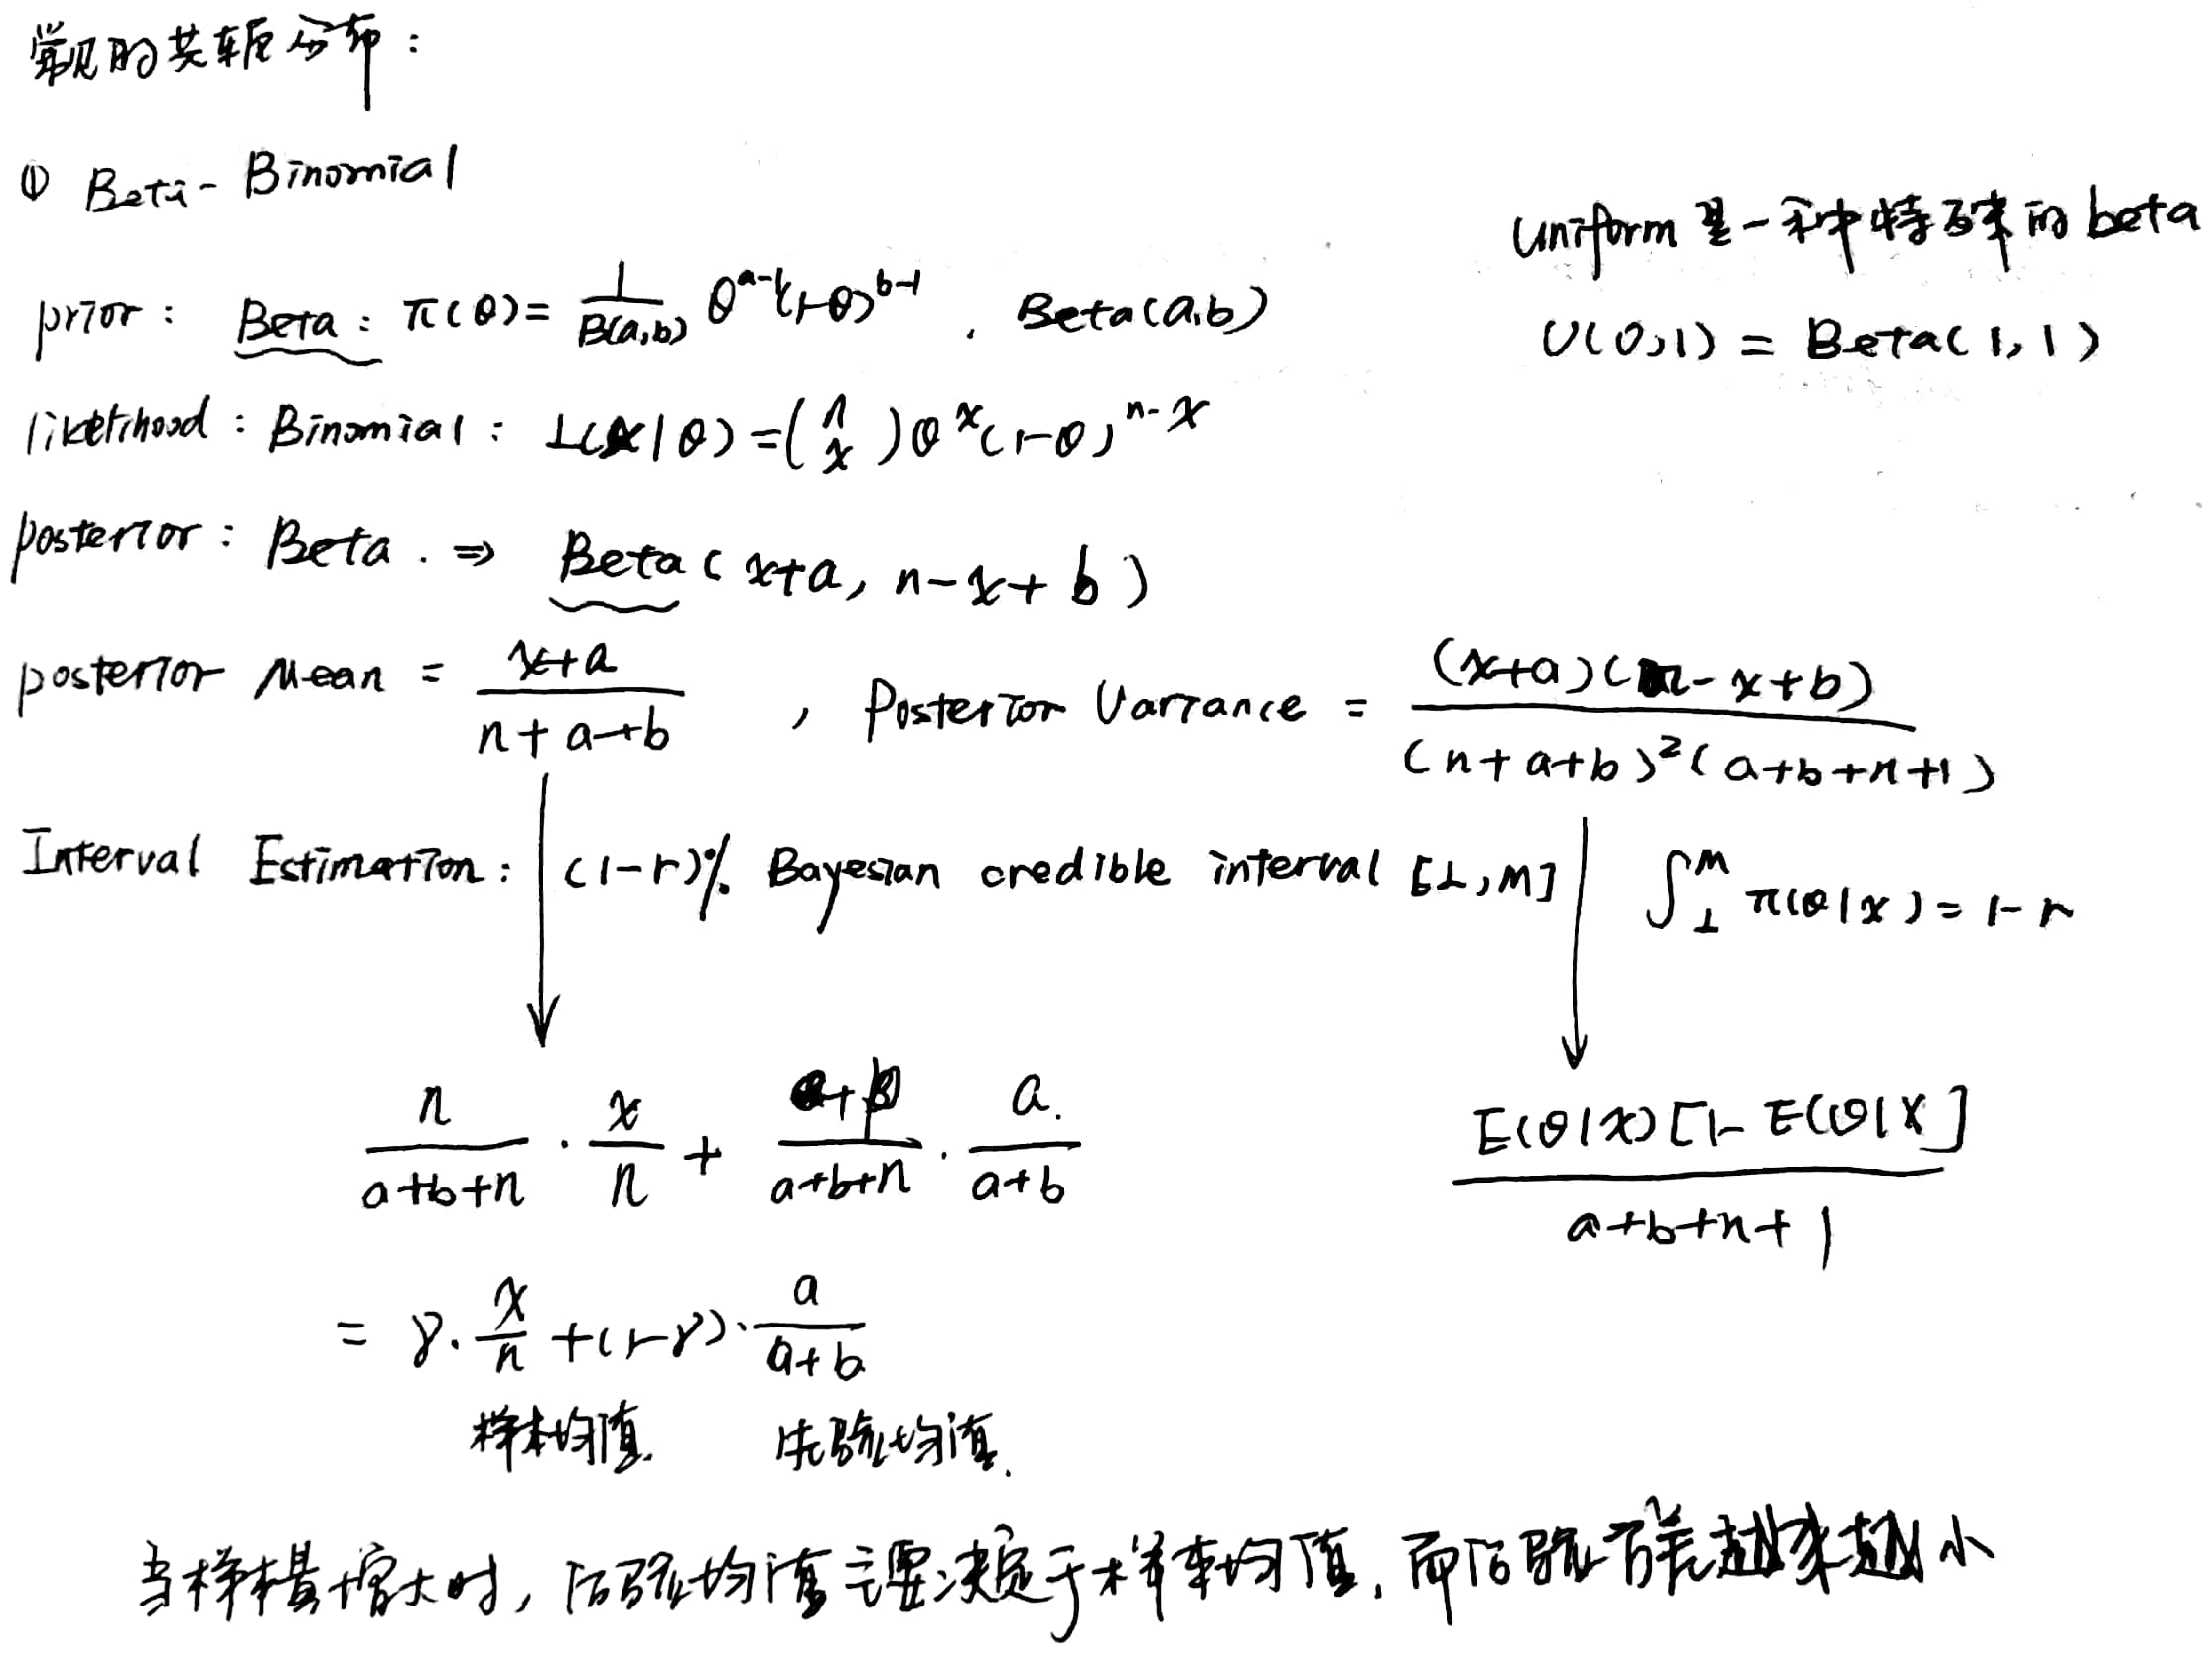 常见的共轭分布：
① Beta - Binomial
uniform 是一种特殊的 beta
prior : Beta : π(θ) = 1/B(a,b) θ^(a-1) (1-θ)^(b-1) . Beta(a,b)
U(0,1) = Beta(1,1)
likelihood : Binomial : L(x|θ) = (n x) θ^x (1-θ)^(n-x)
posterior : Beta . ⇒ Beta ( x+a, n-x+b )
posterior Mean = (x+a)/(n+a+b) , Posterior Variance = (x+a)(n-x+b)/((n+a+b)²(a+b+n+1))
Interval Estimation : (1-r)% Bayesian credible interval [L,M] ∫_L^M π(θ|x) = 1-r
n/(a+b+n) · x/n + (a+b)/(a+b+n) · a/(a+b)
E(θ|x)[1-E(θ|x]/(a+b+n+1)
= γ · x/n + (1-γ) · a/(a+b)
样本均值. 先验均值.
当样本量增大时, 后验均值主要决定于样本均值, 而后验方差越来越小